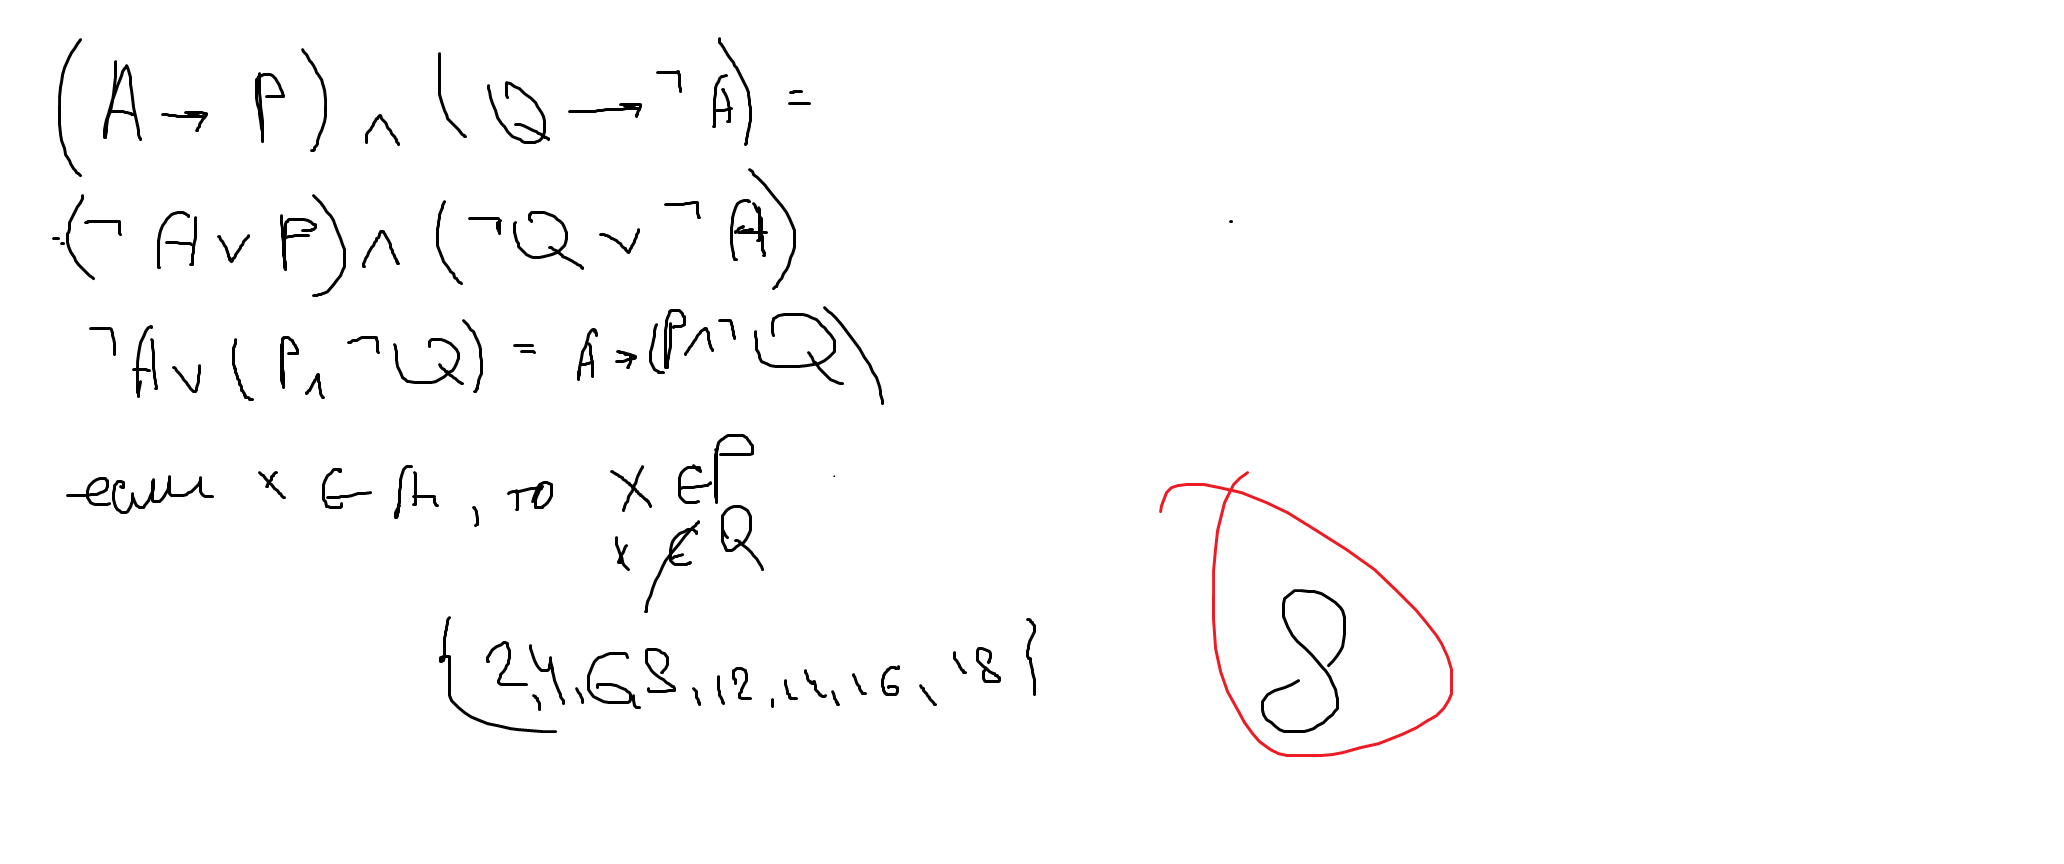 (A → P) ∧ (Q → ¬A) =
=(¬A ∨ P) ∧ (¬Q ∨ ¬A)
¬A ∨ (P ∧ ¬Q) = A → (P ∧ ¬Q)
если x ∈ A, то x ∈ P
x ∉ Q
{2,4,6,8,12,14,16,18}
8